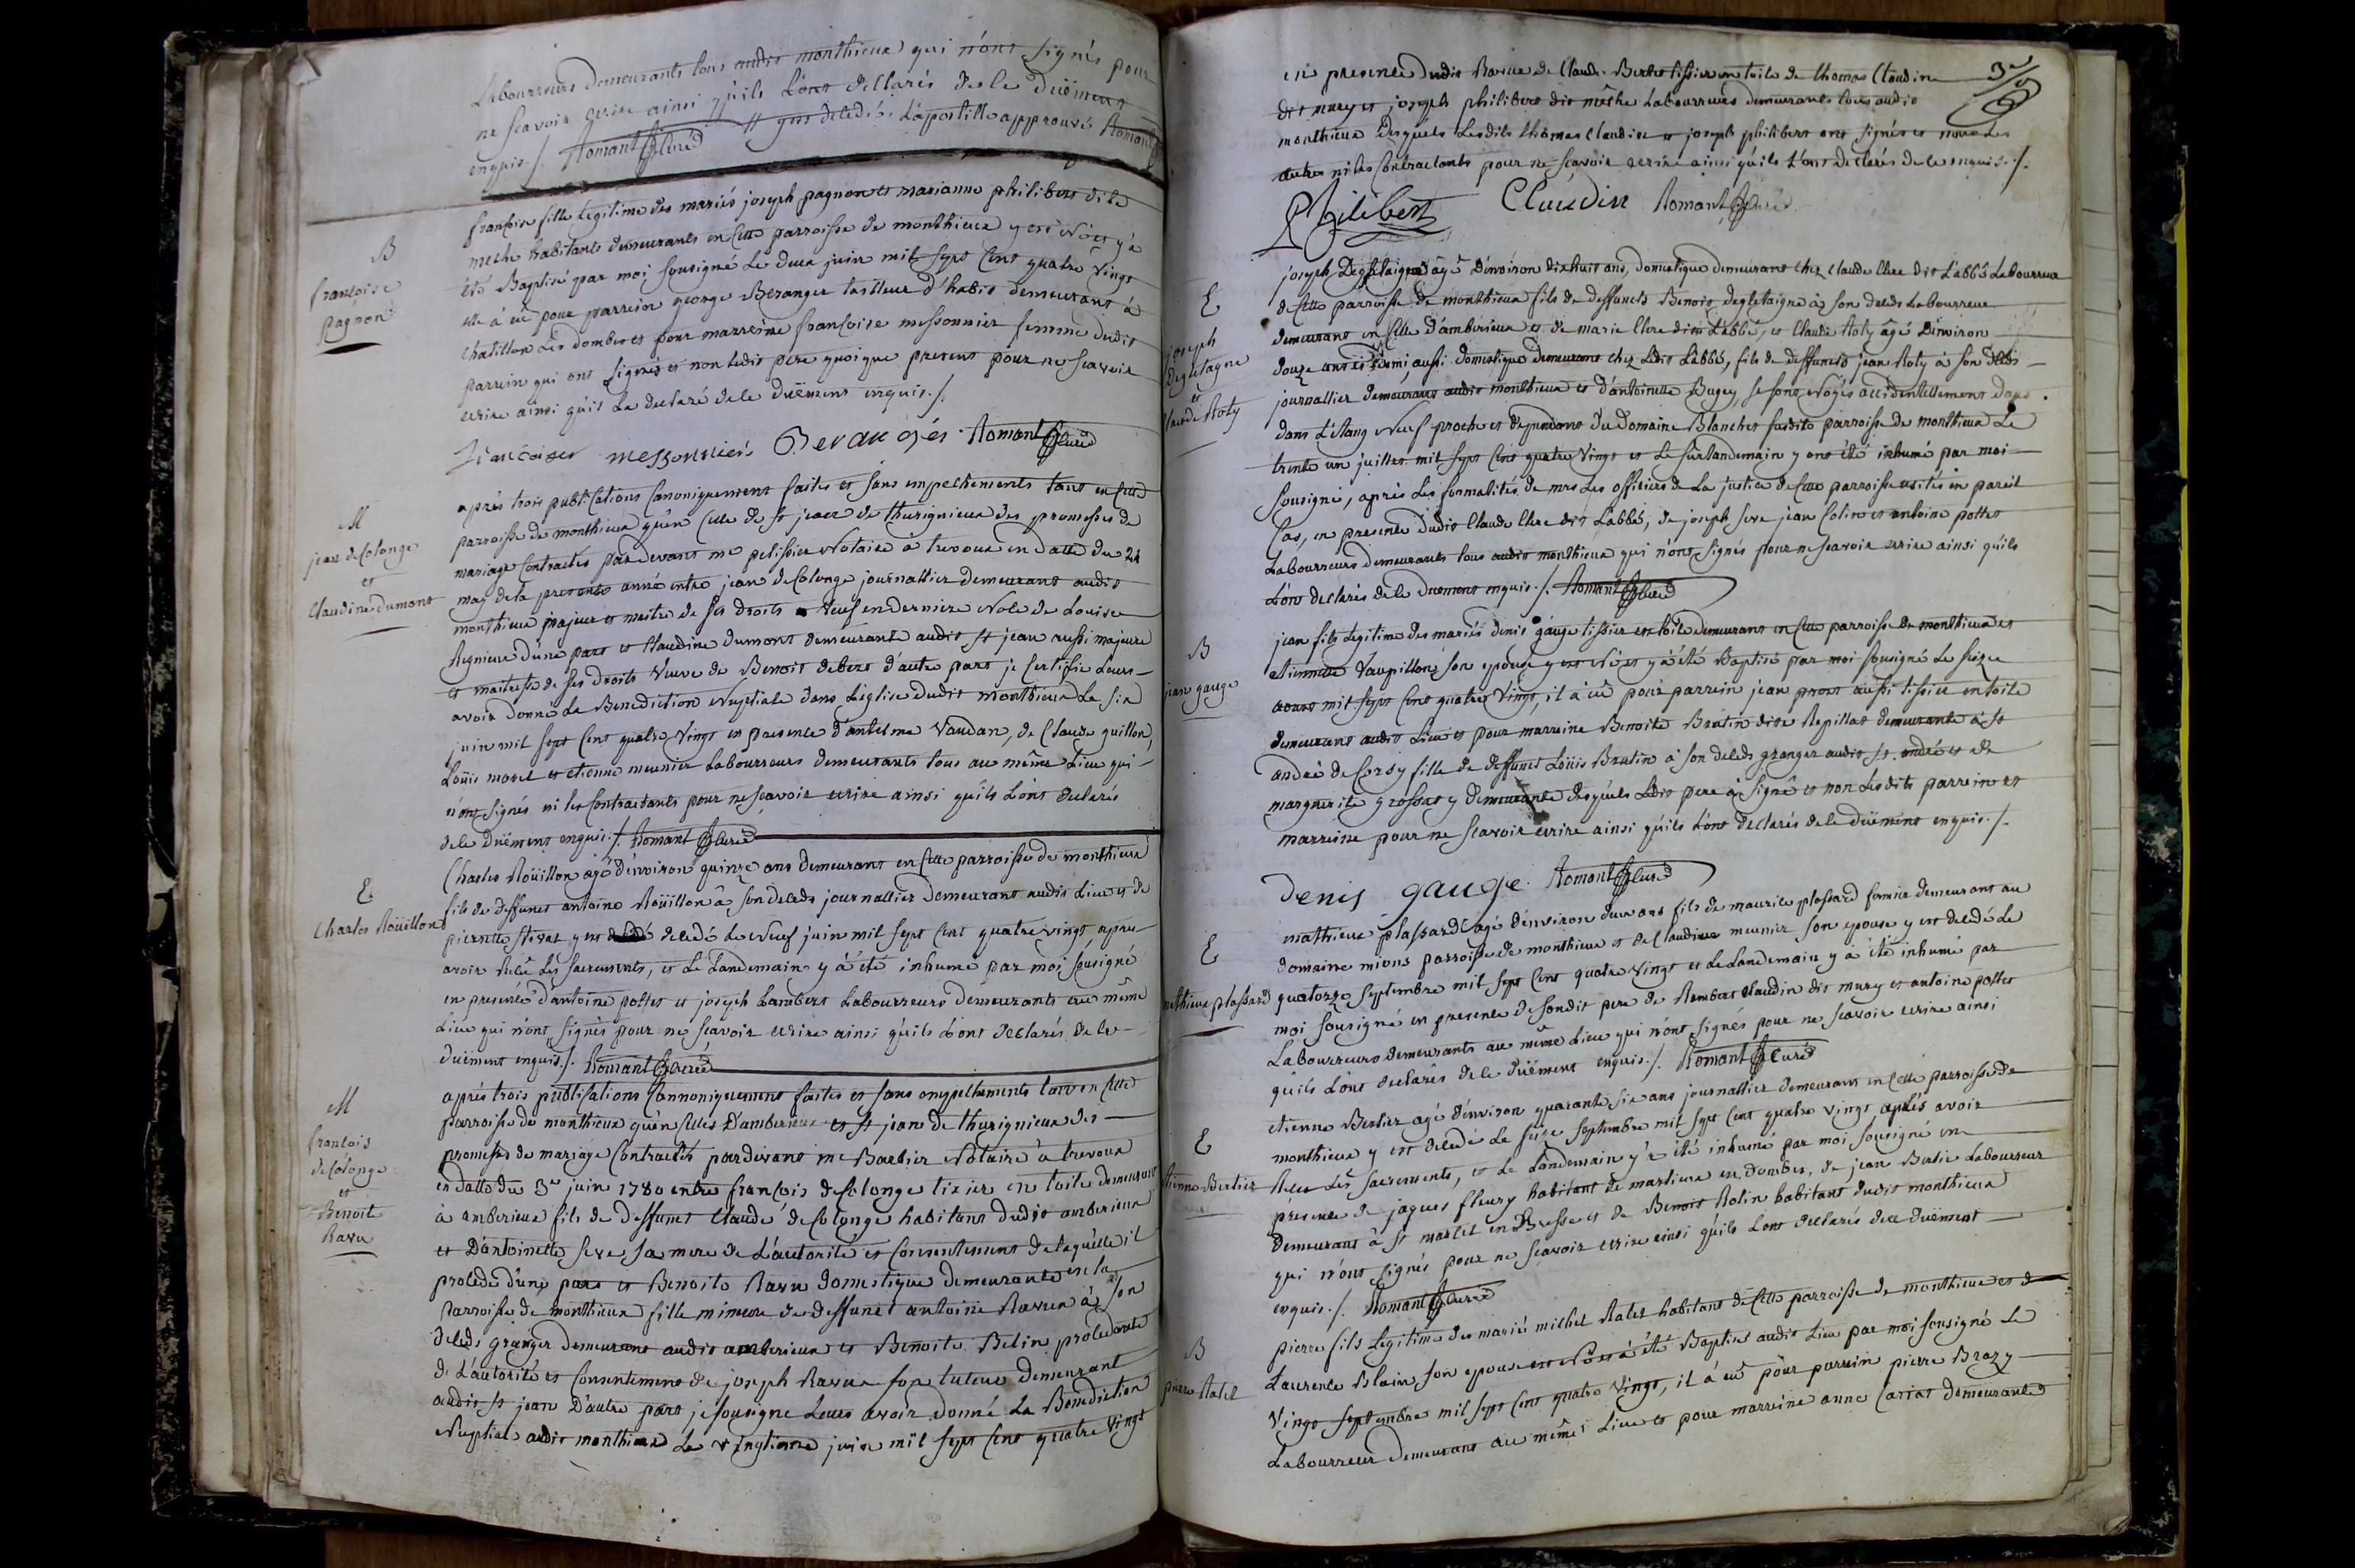 Labourreurs demeurants tous audit monthieux qui n'ont signés pour
ne scavoir ecrire ainsi qu'ils L'ont declarés de le Duëment
enquis ./. Romant Curé // y est decedé. L'apostille approuvé Romant
B
françoise
pagnon
françoise fille Legitime des mariés joseph pagnon et marianne philibert dite
meche habitants demeurants en Cette parroisse de monthieux y est Née et y a
été Baptisé par moi sousigné Le deux juin mil sept Cent quatre vingt
elle à eü pour parrein george Beranger tailleur d'habit demeurant à
Chatillon Les dombes et pour marreine françoise messonnier femme dudit
parrein qui ont signés et non Ledit pere quoique present pour ne scavoir
ecrire ainsi qu'il La declaré de le Duëment enquis ./.
françoise messonnier Berangér Romant Curé
M
jean deColonge
et
Claudine dumont
après trois publications Canoniquement faites et sans empechements tant en Cette
parroisse de monthieux qu'en Celle de St jean de thurignieux des promesses de
mariage Contractés pardevant me pelissier Notaire à trevoux en datte du 24
may de la presente année entre jean deColonge journallier demeurant audit
monthieux majeur et maitre de ses droits Veuf en derniere Nôce de Louise
Regnieux d'une part et Claudine dumont demeurante audit St jean aussi majeure
et maitresse de ses droits Veuve de Benoit debert d'autre part je Certifie Leurs
avoir donné La Benediction Nuptiale dans L'eglise dudit monthieux Le six
juin mil sept Cent quatre Vingt en presence d'antelme Vaudan, de Claude guillon,
Loüis morel et etienne meunier Labourreurs demeurants tous au même Lieu qui
n'ont signés ni les Contractants pour ne scavoir ecrire ainsi qu'ils L'ont declarés
de le Duëment enquis ./. Romant Curé
E
Charles Roüillon
Charles Roüillon agé D'environ quinze ans demeurant en Cette parroisse de monthieux
fils de deffunct antoine Roüillon à son deceds journallier demeurant audit Lieu et de
pierrette y est decedé Le Neuf juin mil sept Cent quatre vingt apres
avoir Recû Les sacrements, et Le Landemain y à été inhumé par moi sousigné
en presence d'antoine pottet et joseph Lambert Labourreurs demeurants au même
Lieu qui n'ont signés pour ne scavoir ecrire ainsi qu'ils L'ont declarés de le
duëment enquis ./. Romant Curé
M
francois
deColonge
et
Benoite
Ravu
après trois publications Cannoniquement faites et sans empechements tant en Cette
parroisse de monthieux qu'en Celles D'amberieux et St jean de thurignieux des
promesses de mariage Contractés pardevant me Barbier Notaire à trevoux
en datte du 3e juin 1780 entre francois deColonge tixier en toile demeurant
à amberieux fils de Deffunct Claude deColonge habitant dudit amberieux
et D'antoinette seve sa mere de L'autorité et Consentement de laquelle il
procede d'une part et Benoite Ravu domestique demeurante en la
parroisse de monthieux fille mineure de deffunct antoine Ravu à son
deceds granger demeurant audit amberieux et Benoite Belin procedante
de L'autorité et Consentement de joseph Ravu son tuteur demeurant
audit St jean D'autre part je sousigné Leurs avoir donné La Benediction
Nuptiale audit monthieux Le vingtieme juin mil sept Cent quatre Vingt
3e/9
en presence dudit Ravu de Claude Berthet tissier en toile de thomas Claudin
dit mury et joseph philibert dit mêche Labourreurs demeurants tous audit
monthieux desquels Lesdits thomas Claudin et joseph philibert ont signés et non Les
autres ni les Contractants pour ne scavoir ecrire ainsi qu'ils L'ont declarés de le enquis ./.
Philibert Claudin Romant Curé
E
joseph
Degletagne
et
Claude Roty
joseph Degletaigne âgé D'environ dixhuit ans, domestique demeurant chez Claude Clere dit L'abbé Labourreur
de Cette parroisse de monthieux fils de deffuncts Benoit degletaigne à son deceds Labourreur
demeurant en Celle d'amberieux et de marie Clere dite L'abbé, et Claude Roty âgé D'environ
douze ans et demi, aussi domestique demeurant chez Ledit L'abbé, fils de deffuncts jean Roty à son deceds
journallier demeurant audit monthieux et d'antoinette Bugey, se sont Noyés accidentellement dans
dans L'etang Neuf proche et dependant du domaine Blanchet susdite parroisse de monthieux Le
trente un juillet mil sept Cent quatre Vingt et Le surlandemain y ont été inhumé par moi
sousigné, après Les formalités de mrs Les officiers de La justice de Cette parroisse usités en pareil
Cas, en presence dudit Claude Clere dit L'abbé, de joseph seve jean Colin et antoine pottet
Labourreurs demeurants tous audit monthieux qui n'ont signés pour ne scavoir ecrire ainsi qu'ils
L'ont declarés de le Duement enquis ./. Romant Curé
B
jean gauge
jean fils Legitime des mariés denis gauge tissier en toile demeurant en Cette parroisse de monthieux et
etiennette Vaupillon son epouse y est Né et y à été Baptisé par moi sousigné Le seize
aoust mil sept Cent quatre Vingt, il à eü pour parrein jean prost aussi tissier en toile
demeurant audit Lieu et pour marreine Benoite Brutin dite Repillat demeurante à St
andré de Corsy fille de deffunct Loüis Brutin à son deceds granger audit St. andré et de
marguerite grossat y demeurante desquels Ledit pere à signé et non Lesdits parrein et
marreine pour ne scavoir ecrire ainsi qu'ils L'ont declarés de le Duëment enquis ./.
denis gauge Romant Curé
E
mathieux plassard
mathieux plassard agé d'environ deux ans fils de maurice plassard fermier demeurant au
domaine mions parroisse de monthieux et de Claudine meunier son epouse y est decedé Le
quatorze septembre mil sept Cent quatre Vingt et Le Landemain y à été inhumé par
moi sousigné en presence de sondit pere de Rambert Claudin dit mury et antoine pottet
Labourreurs demeurants au même Lieu qui n'ont signés pour ne scavoir ecrire ainsi
qu'ils L'ont declarés de le duëment enquis ./. Romant Curé
E
etienne Bertier
etienne Bertier agé d'environ quarante six ans journallier demeurant en Cette parroisse de
monthieux y est decedé Le seize septembre mil sept Cent quatre vingt après avoir
Recu Les sacrements, et Le Landemain y à été inhumé par moi sousigné en
presence de jaques fleury habitant de marlieux en dombes, de jean Bertier Labourreur
demeurant à St marcel en Bresse et de Benoit Rolin habitant dudit monthieux
qui n'ont signés pour ne scavoir ecrire ainsi qu'ils L'ont declarés de le duëment
enquis ./. Romant Curé
B
pierre Ratel
pierre fils Legitime des mariés michel Ratel habitant de Cette parroisse de monthieux et de
Laurence Blain son epouse est Né et à été Baptisé audit Lieu par moi sousigné Le
Vingt septembre mil sept Cent quatre Vingt, il à eü pour parrein pierre Brazy
Labourreur demeurant au même Lieu et pour marreine anne Carriat demeurante